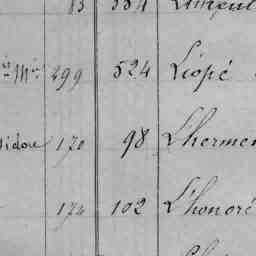 83 334
299 524 Liopé
sidore 170 98 Lhermen
174 102 L'honoré